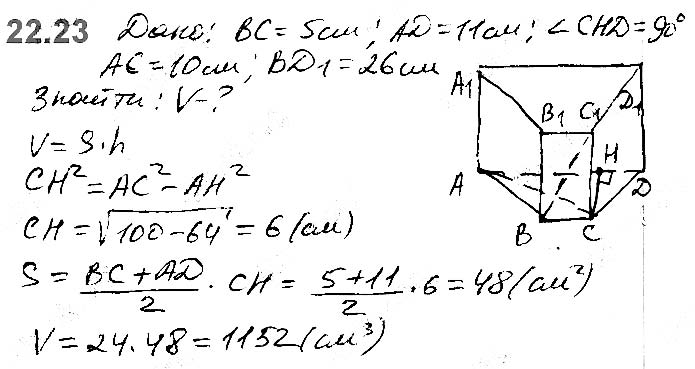 22.23 Дано: BC = 5см; AD = 11см; ∠CHD = 90°
AC = 10см; BD1 = 26см
Знайти: V - ?
V = S·h
CH² = AC² - AH²
CH = √100-64 = 6 (см)
S = BC + AD / 2 · CH = 5 + 11 / 2 · 6 = 48 (см²)
V = 24·48 = 1152 (см³)
A1 B1 C1 D1
A H D
B C